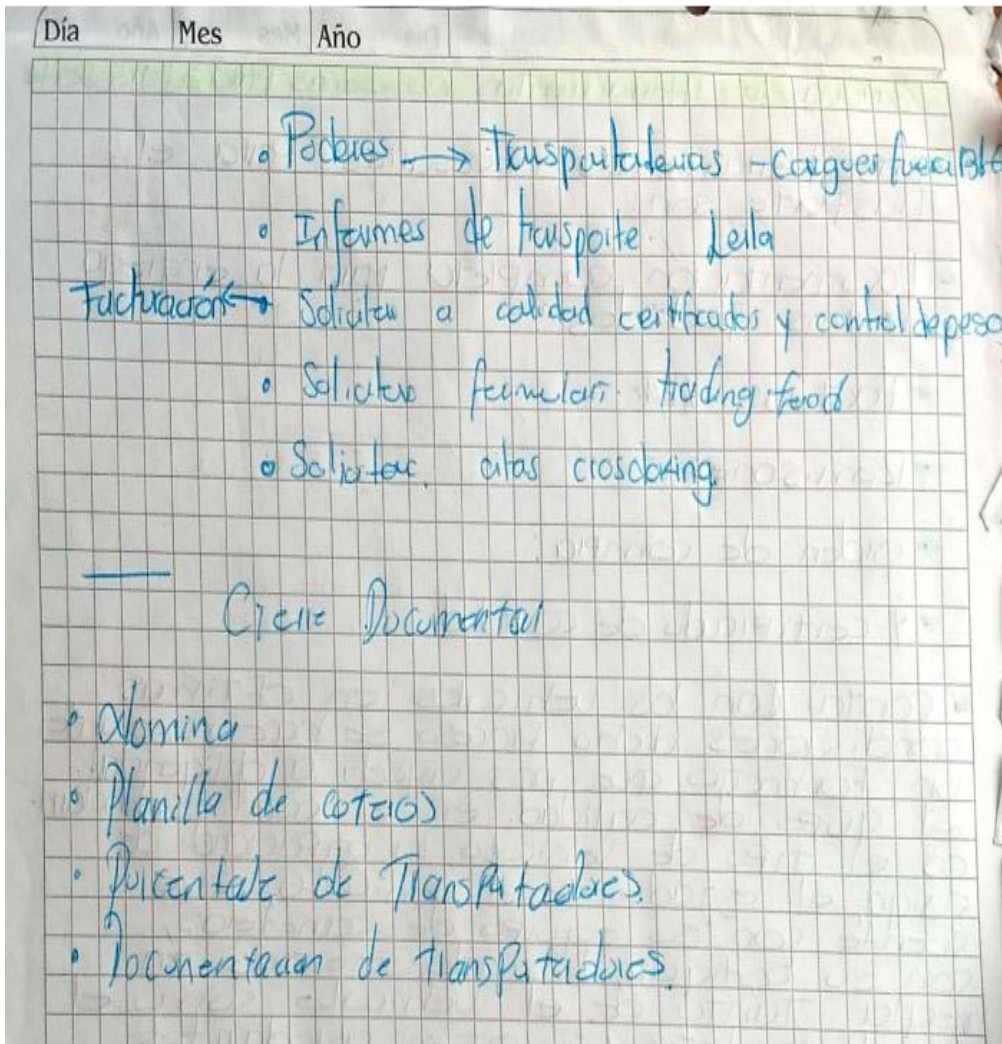 Día Mes Año
• Poderes → Transportadoras - Cargues fuera
• Informes de trasporte. Leila
Facturación ↔ Solicitar a calidad certificados y control de peso
• Solicitar trading food
• Solicitar
Cierre Documental
• Nomina
• Planilla de
• Porcentaje de Transportadores.
• Documentacion de transportadores.